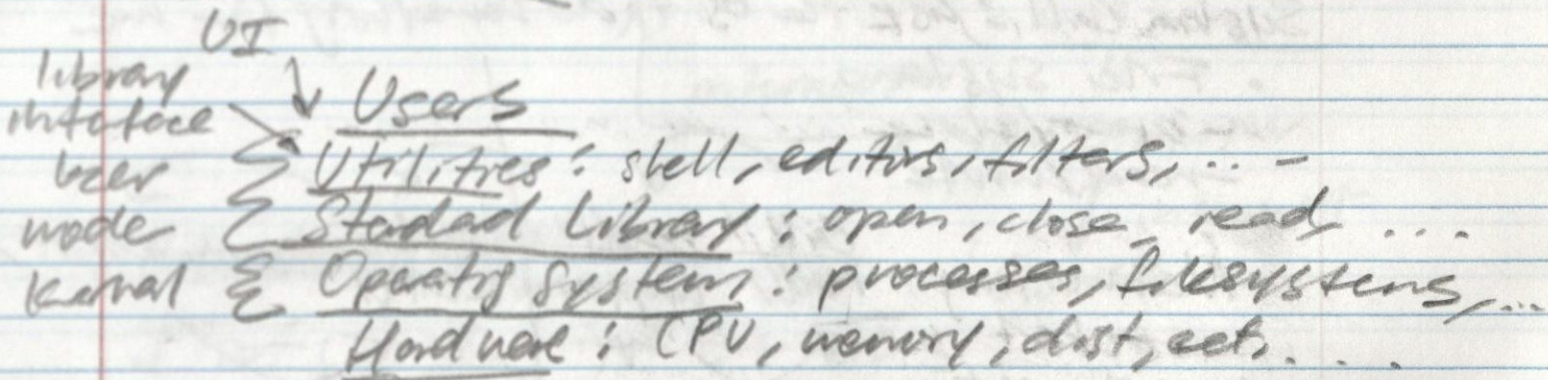 UI
library
interface
Users
user
mode
Utilities: shell, editors, filters, ...
Standard Library: open, close, read, ...
kernal
Operating System: processes, filesystems, ...
Hardware: CPU, memory, disk, ect, ....